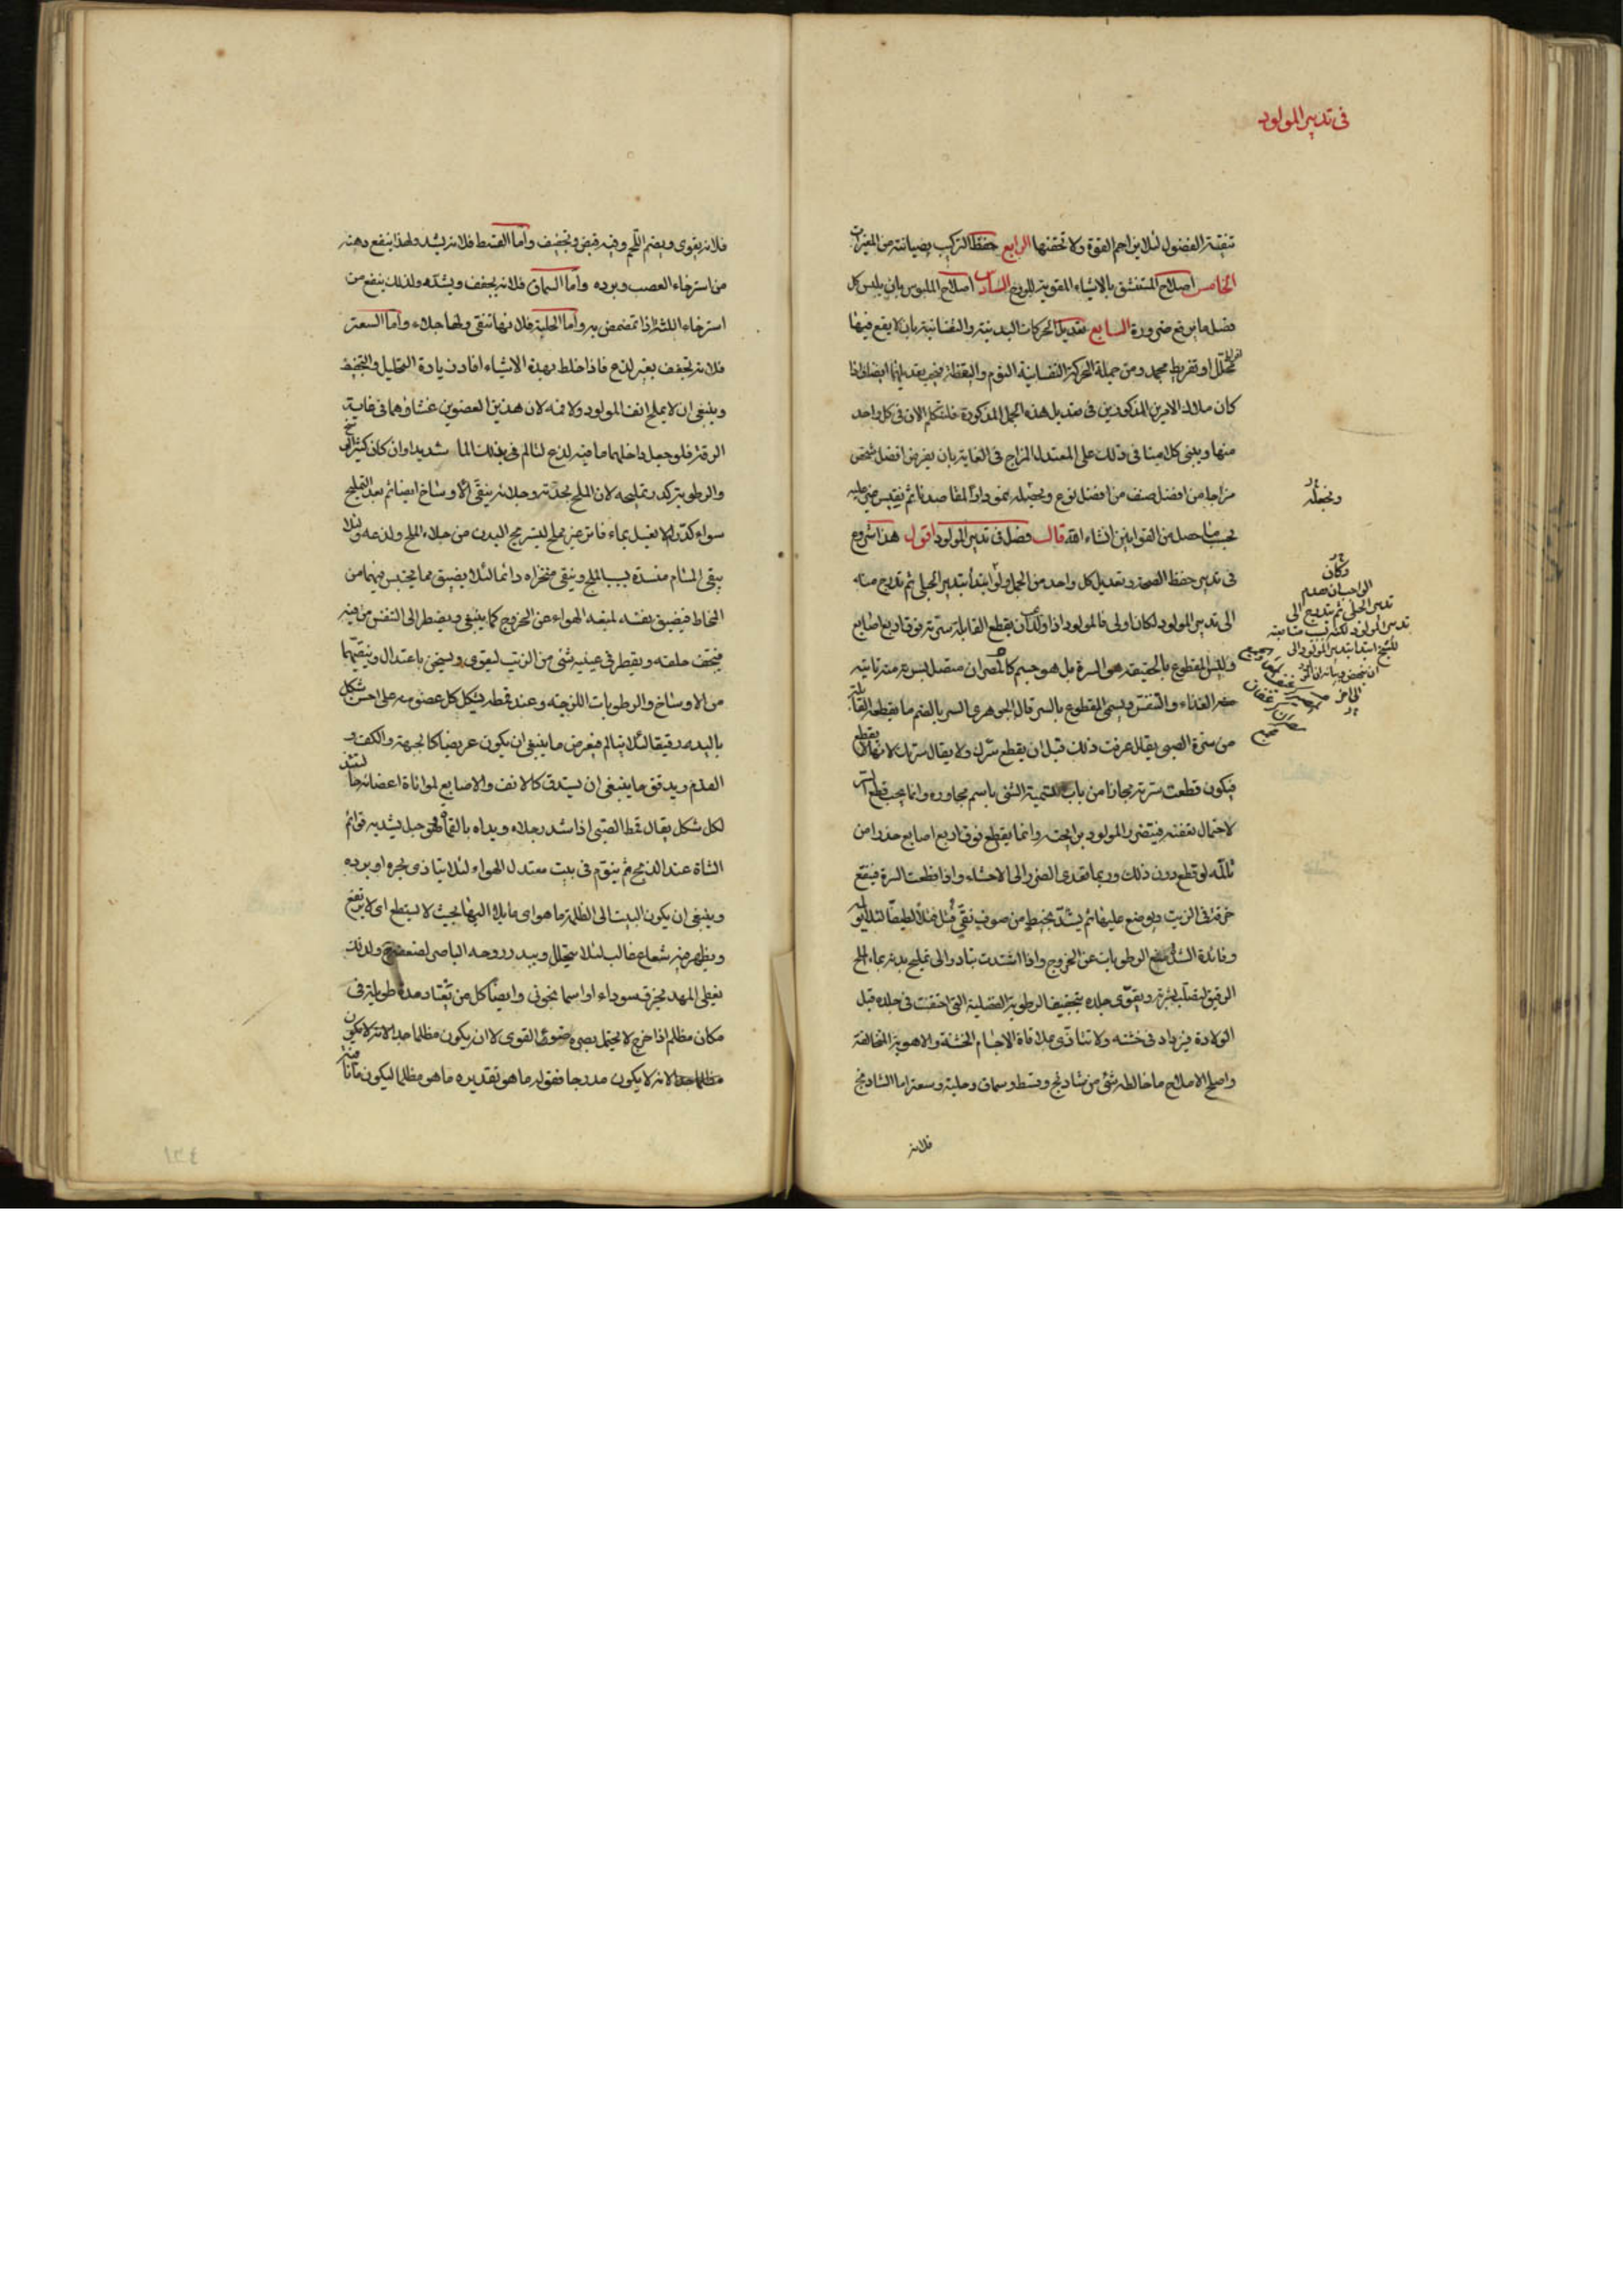 فى تدبير المولود
تنقية الفضول لئلا يزاحم القوة ولا تخنقها الرابع حفظ التركيب بصيانته من المغيرات
الخامس اصلاح المستنشق بالاشياء المقوية للروح السادس اصلاح الملبوس بان يلبس كل
فصل ما يدفع ضرورة السابع تعديل الحركات البدنية والنفسانية بان لا يقع فيها
او تفريط ومن جملة الحركة النفسانية النوم واليقظة فيجب تعديلهما ايضا فاذا
كان ملاك الامرين المذكورين فى تعديل هذه الجمل المذكورة فلنتكلم الان فى كل واحد
منها ويبنى كلامنا فى ذلك على المعتدل المزاج فى الغاية بان يفرض افضل شخص
مزاجا من افضل صنف من افضل نوع ونجعله نموذارا لمقاصدنا ثم يقيس غيره عليه
بحسب ما حصل من القوانين ان شاء الله قال فصل فى تدبير المولود اقول هذا شروع
فى تدبير حفظ الصحة وتعديل كل واحد من الجمل ولو ابتدأ بتدبير الحبلى ثم تدرج منه
الى تدبير المولود لكان اولى فالمولود اذا ولد يجب ان يقطع القابلة سرته فوق اربع اصابع
وليس المقطوع بالحقيقة هو السرة بل هو جسم كالمصران متصل بسرته منه تأتيه
الغذاء والتنفس ويسمى المقطوع بالسر قال الجوهرى السر بالضم ما تقطعه القابلة
من سرة الصبى يقال عرفت ذلك قبل ان يقطع سرك ولا يقال سرتك لانها لا يقطع
فيكون قطعت سرته مجازا من باب تسمية الشئ باسم مجاوره وانما يجب قطع السر
لاحتمال تعفنه فيتضرر المولود برايحته وانما يقطع فوق اربع اصابع حذرا من
تألمه لو قطع دون ذلك وربما تعدى الضرر الى الاحشاء واذا قطعت السرة فيقع
خرقة فى الزيت ويوضع عليها ثم يشد بخيط من صوف نقى فتل فتلا لطيفا لئلا يؤلم
وفائدة الشد منع الرطوبات عن الخروج واذا اشتدت تبادر الى تمليح بدنه بماء الملح
الرقيق لتصلب بشرته ويقوى جلده بتجفيف الرطوبة الفضلية التى احتقنت فى جلده قبل
الولادة فيزداد فى خشنه ولا تتأذى بملاقاة الاجسام الخشنة والاهوية المخالفة
واصلح الاملاح ما خالطه شئ من شادنج وقسط وسماق وحلبة وسعتر اما الشادنج
فلانه
ونجعله
وكان
الواجب ان يقدم
تدبير الحبلى ثم يتدرج الى
تدبير المولود لكنه متابعة
للشيخ ابتدأ بتدبير المولود الى
فلانه يقوى ويضم اللحم وفيه قبض وتجفيف واما القسط فلانه يشد ولهذا ينفع دهنه
من استرخاء العصب وبرده واما السماق فلانه يجفف ويشده ولذلك ينفع من
استرخاء اللثة اذا تمضمض به واما الحلبة فلانها تنقى ولها جلاء واما السعتر
فلانه تجفف بغير لذع فاذا خلط بهذه الاشياء افادت زيادة التحليل والتجفيف
وينبغى ان لا يملح انف المولود ولا فمه لان هذين العضوين غشاؤهما فى غاية
الرقة فلو جعل داخلهما ما فيه لذع لتألم فى تلك الما شديدا وان كان كثير الوسخ
والرطوبة كرر تمليحه لان الملح بحدته وجلائه ينقى الاوساخ ايضا ثم بعد التمليح
سواء كرر او لا يغسل بماء فاتر غير مملح ليستريح البدن من جلاء الملح ولذعه ولئلا
يبقى المسام منسدة بسبب الملح وينقى منخراه دائما لئلا يضيق مما يحتبس فيهما من
المخاط فيضيق نفسه لمنعه الهواء عن الخروج كما ينبغى ويضطر الى التنفس من فيه
فيجفف حلقه ويقطر فى عينيه شئ من الزيت ليقوى ويسخن باعتدال وينقيهما
من الاوساخ والرطوبات اللزجة وعند قمطه يشكل كل عضو منه على احسن شكل
باليد رفيقا لئلا يتألم فيعرض ما ينبغى ان يكون عريضا كالجبهة والكف و
القدم ويدقق ما ينبغى ان يستدق كالانف والاصابع لمواتاة اعضائه حا لينه
لكل شكل يقال قمط الصبى اذا شد رجلاه ويداه بالقماط وهو حبل يشد به قوائم
الشاة عند الذبح ثم ينوم فى بيت معتدل الهواء لئلا يتأذى بحره او برده
وينبغى ان يكون البيت الى الظلمة ما هو اى مايلا اليها بحيث لا يسطع اى لا يرتفع
ويظهر فيه شعاع غالب لئلا يتحلل ويبدد روحه الباصر لضعفه ولذلك
يغطى المهد بخرق سوداء او اسمانجونى وايضا كل من يعتاد مدة طويلة فى
مكان مظلم اذا خرج لا يحتمل بصره ضوء القوى لا ان يكون مظلما جدا لانه لا يكون
لانه لا يكون مدرجا فقوله ما هو تقديره ما هو مظلما ليكون مأنا منه
١٣٤